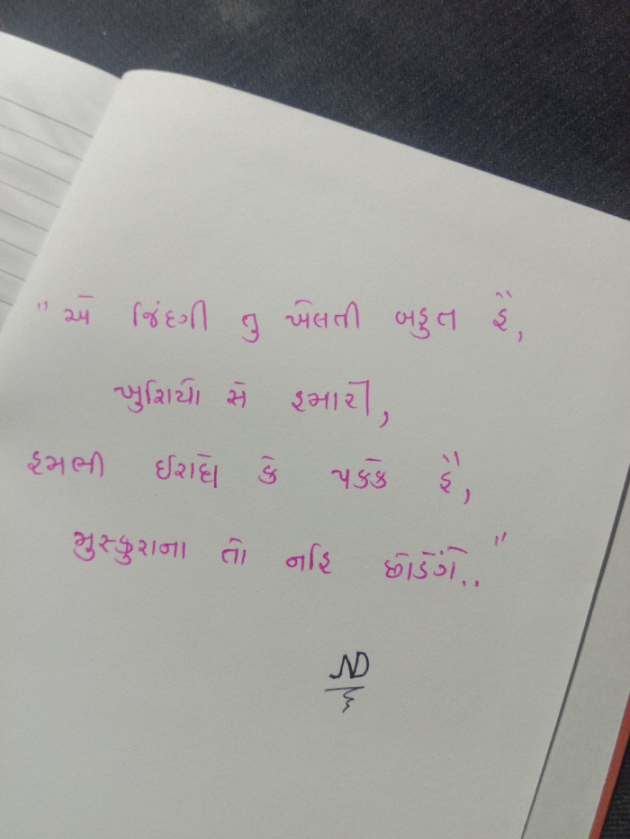 "એ જિંદગી તુ ખેલતી બહુત હૈં,
ખુશિયો સે હમારી,
હમભી ઈરાદે કે પક્કે હૈં,
મુસ્કુરાના તો નહિ છોડેંગે.."
ND